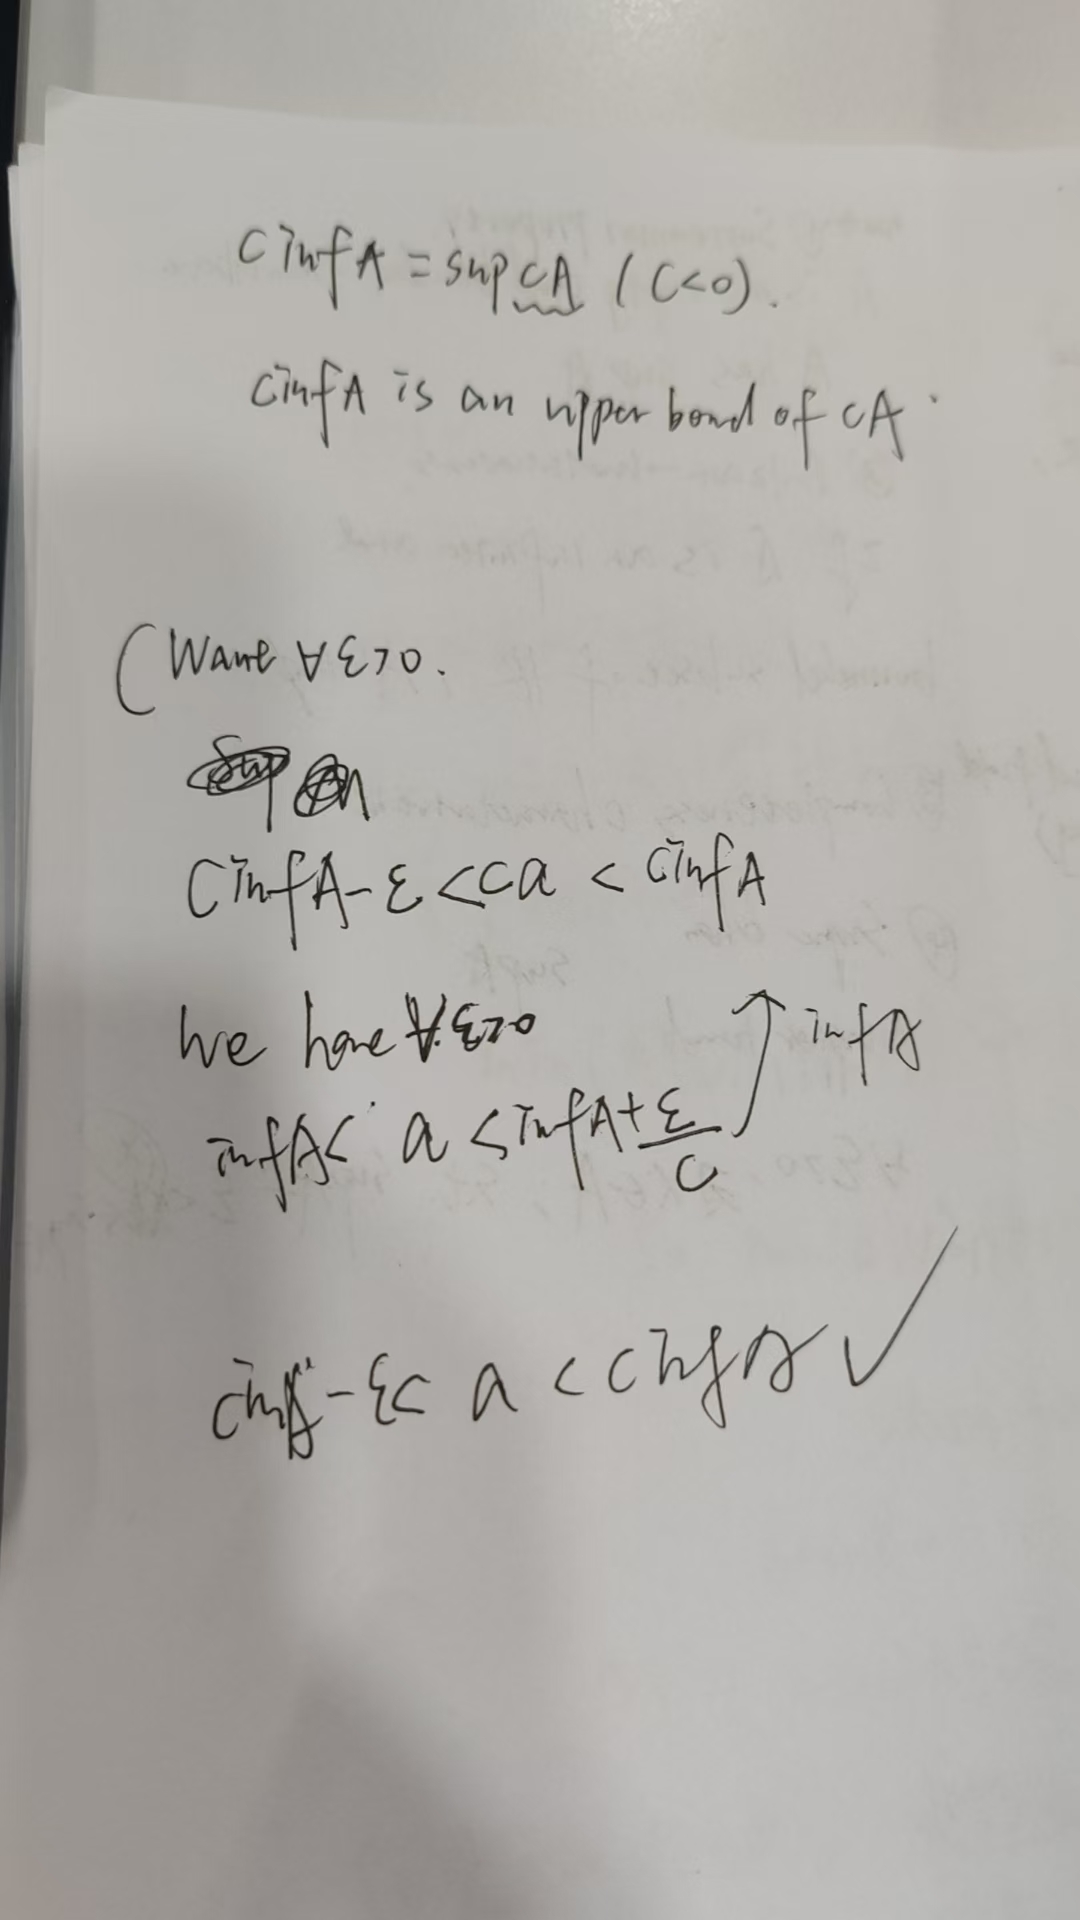 c inf A = sup cA (c<0).
c inf A is an upper bond of cA.
(Want ∀ε>0.
c inf A - ε < ca < c inf A
We have ∀ε>0 inf A
inf A < a < inf A + ε/c
c inf A - ε < a < c inf A ✓